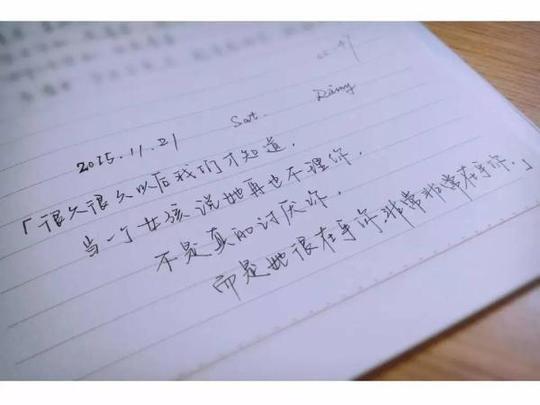 2015.11.21 Sat. Rainy
「很久很久以后我们才知道,
当一个女孩说她再也不理你,
不是真的讨厌你,
而是她很在乎你非常非常在乎你.」